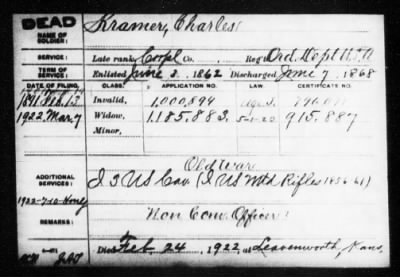 DEAD
NAME OF SOLDIER:
Kramer, Charles
SERVICE:
Late rank, Corpl Co. Reg't Ord. Dept U.S.A
TERM OF SERVICE:
Enlisted June 3, 1862 Discharged June 7, 1868
DATE OF FILING. CLASS. APPLICATION NO. LAW. CERTIFICATE NO.
1891 Feb. 13 Invalid, 1,000,894
1922 Mar. 7 Widow, 1,185,883 5-1-20 915,887
Minor,
ADDITIONAL SERVICES:
Old War
I 3 US Cav (I US Mtd Rifles 1856-61)
REMARKS:
Non Com. Officer
Died Feb 24, 1922, at Leavenworth, Kans.